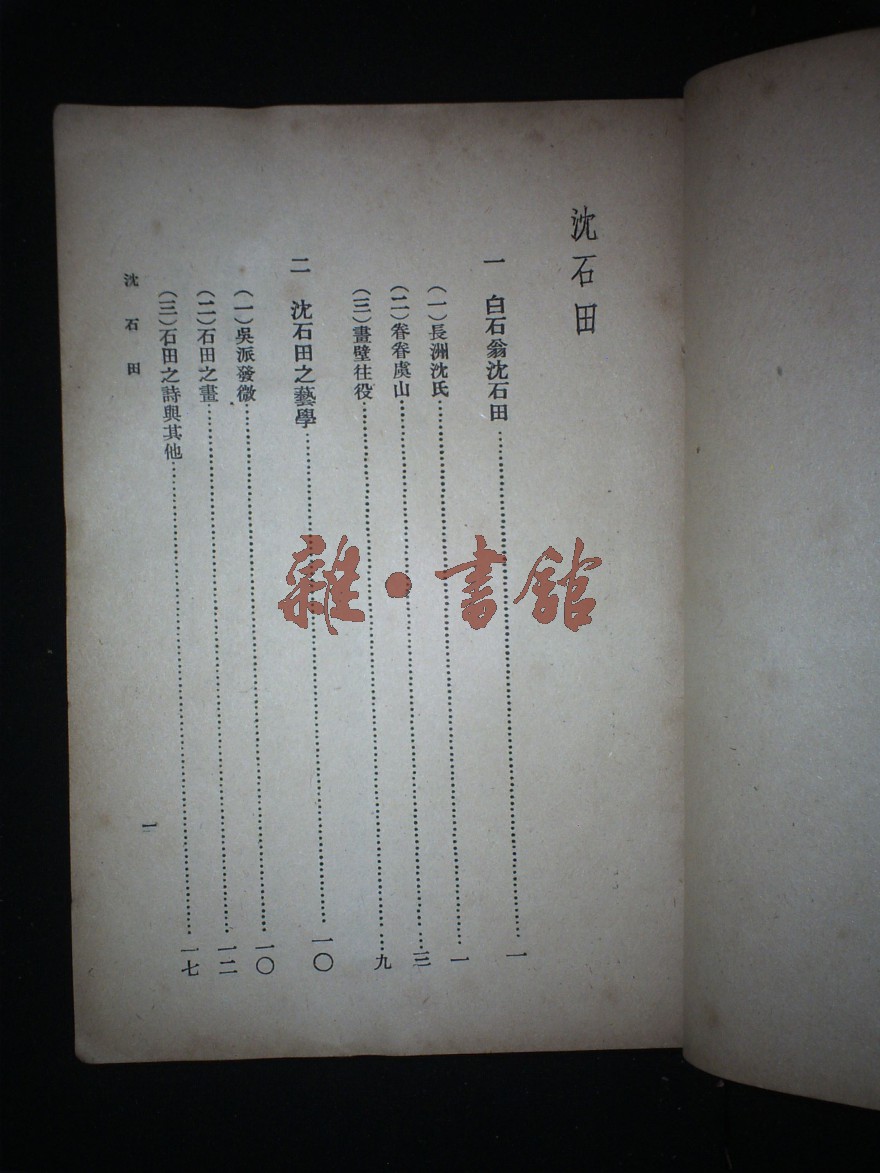 沈石田
一 白石翁沈石田……一
(一)長洲沈氏……一
(二)眷眷虞山……三
(三)畫壁往役……九
二 沈石田之藝學……一〇
(一)吳派發微……一〇
(二)石田之畫……一二
(三)石田之詩與其他……一七
沈石田
一
雜·書館